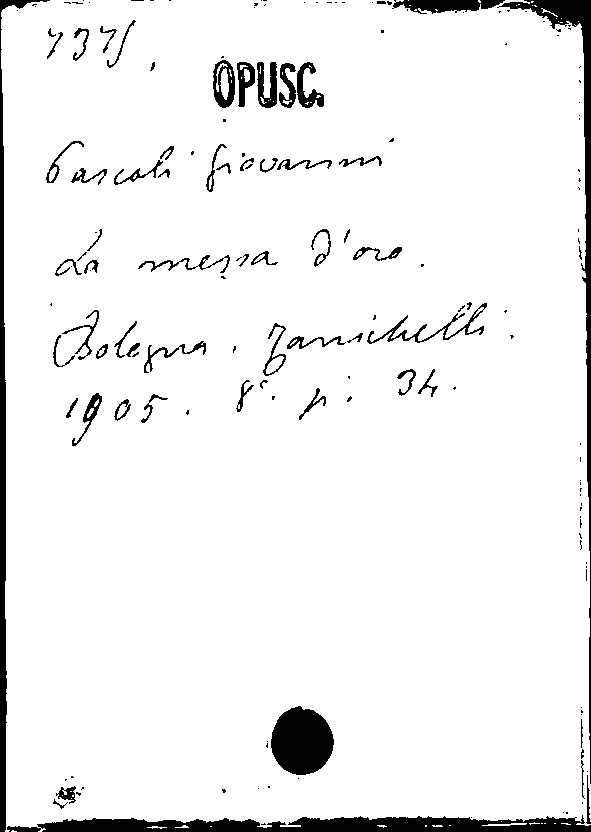 7375.
OPUSC.
Pascoli Giovanni
La messa d'oro.
Bologna. Zanichelli.
1905. 8°. p. 34.